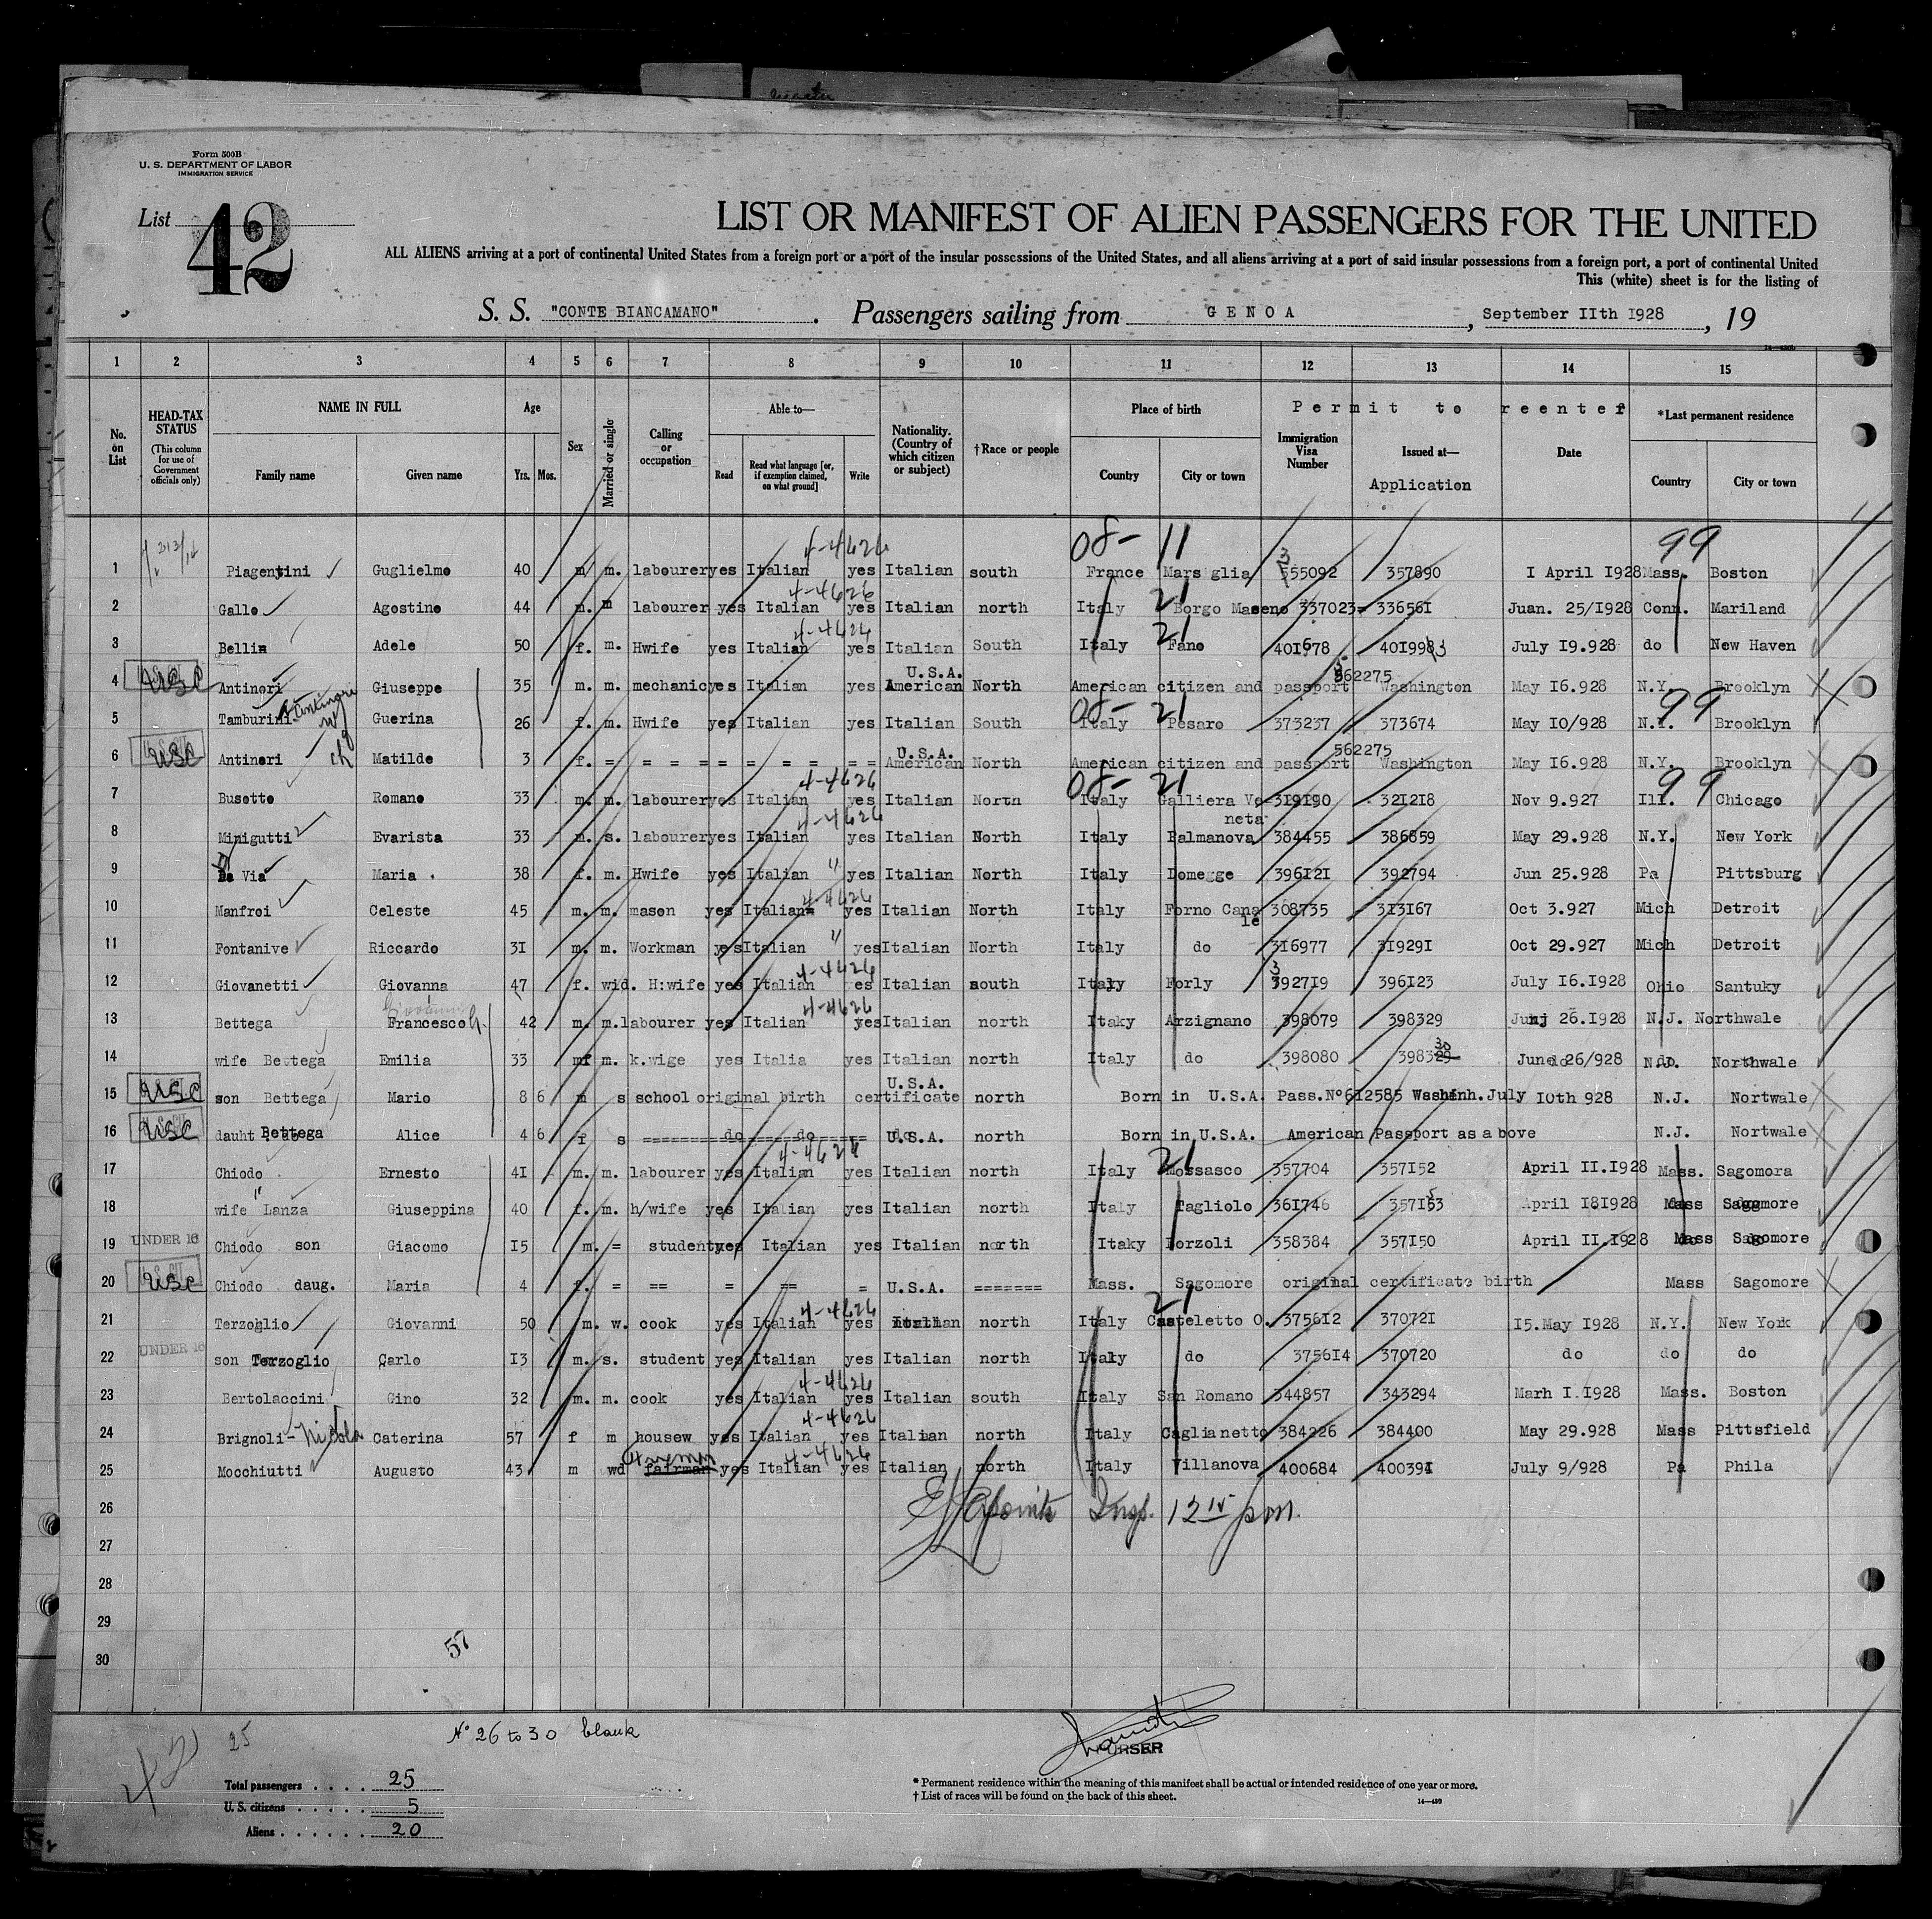 Form 500B
U. S. DEPARTMENT OF LABOR
IMMIGRATION SERVICE
List 42
LIST OR MANIFEST OF ALIEN PASSENGERS FOR THE UNITED
ALL ALIENS arriving at a port of continental United States from a foreign port or a port of the insular possessions of the United States, and all aliens arriving at a port of said insular possessions from a foreign port, a port of continental United
This (white) sheet is for the listing of
S. S. "CONTE BIANCAMANO". Passengers sailing from GENOA, September IIth I928, 19
1 2 3 4 5 6 7 8 9 10 11 12 13 14 15
No. on List
HEAD-TAX STATUS (This column for use of Government officials only)
NAME IN FULL Family name Given name
Age Yrs. Mos.
Sex
Married or single
Calling or occupation
Able to— Read Read what language [or, if exemption claimed, on what ground] Write
Nationality. (Country of which citizen or subject)
†Race or people
Place of birth Country City or town
Permit to reenter
Immigration Visa Number
Issued at— Application
Date
*Last permanent residence Country City or town
08- 11 99
4-4626
1 Piagentini Guglielmo 40 m m. labourer yes Italian yes Italian south France Marsiglia 355092 357890 I April I928 Mass. Boston
4-4626 21
2 Gallo Agostino 44 m. m labourer yes Italian yes Italian north Italy Borgo Maseno 337023= 33656I Juan. 25/I928 Conn. Mariland
4-4626 21
3 Bellin Adele 50 f. m. Hwife yes Italian yes Italian South Italy Fano 40I678 40I998 July I9.928 do New Haven
4 USC Antinori Giuseppe 35 m. m. mechanic yes Italian yes U.S.A. American North American citizen and passport 562275 Washington May I6.928 N.Y. Brooklyn
08- 21 99
5 Tamburini Guerina 26 f. m. Hwife yes Italian yes Italian South Italy Pesaro 373237 373674 May I0/928 N.Y. Brooklyn
6 USC Antinori ch Matilde 3 f. = = = = = = = = = = U.S.A. American North American citizen and passport 562275 Washington May I6.928 N.Y. Brooklyn
4-4626 08- 21 99
7 Busetto Romano 33 m. m. labourer yes Italian yes Italian North Italy Galliera Veneta 3I9I90 32I2I8 Nov 9.927 Ill. Chicago
4-4626
8 Minigutti Evarista 33 m. s. labourer yes Italian yes Italian North Italy Palmanova 384455 386859 May 29.928 N.Y. New York
9 Da Via Maria . 38 f. m. Hwife yes Italian " yes Italian North Italy Domegge 396I2I 392794 Jun 25.928 Pa Pittsburg
4-4626
10 Manfroi Celeste 45 m. m. mason yes Italian= yes Italian North Italy Forno Canale 308735 3I3I67 Oct 3.927 Mich Detroit
11 Fontanive Riccardo 3I m. m. Workman yes Italian " yes Italian North Italy do 3I6977 3I929I Oct 29.927 Mich Detroit
4-4626
12 Giovanetti Giovanna 47 f. wid. H:wife yes Italian yes Italian south Italy Forly 3927I9 396I23 July I6.I928 Ohio Santuky
4-4626
13 Bettega Francesco G. 42 m. m. labourer yes Italian yes Italian north Itaky Arzignano 398079 398329 Junj 26.I928 N.J. Northwale
14 wife Bettega Emilia 33 mf m. k.wige yes Italia yes Italian north Italy do 398080 398330 June 26/928 N.J. Northwale
15 USC son Bettega Mario 8 6 m s school original birth certificate U.S.A. north Born in U.S.A. Pass.N°6I2585 Washinh. July I0th 928 N.J. Nortwale
16 USC dauht Bettega Alice 4 6 f s ======do======do====== U.S.A. north Born in U.S.A. American Passport as above N.J. Nortwale
4-4626 21
17 Chiodo Ernesto 4I m. m. labourer yes Italian yes Italian north Italy Mossasco 357704 357I52 April II.I928 Mass. Sagomora
18 wife Lanza Giuseppina 40 f. m. h/wife yes Italian yes Italian north Italy Tagliolo 36I746 357I53 April I8I928 Mass Sagomore
19 UNDER 16 Chiodo son Giacomo I5 m. = student yes Italian yes Italian north Itaky Borzoli 358384 357I50 April II.I928 Mass Sagomore
20 USC Chiodo daug. Maria 4 f. = == = == = U.S.A. ======= Mass. Sagomore original certificate birth Mass Sagomore
4-4626 21
21 Terzoglio Giovanni 50 m. w. cook yes Italian yes Italian north Italy Casteletto O. 3756I2 37072I I5.May I928 N.Y. New York
22 UNDER 16 son Terzoglio Carlo I3 m. s. student yes Italian yes Italian north Italy do 3756I4 370720 do do do
4-4626
23 Bertolaccini Gino 32 m. m. cook yes Italian yes Italian south Italy San Romano 344857 343294 Marh I.I928 Mass. Boston
4-4626
24 Brignoli-Nicola Caterina 57 f m housew yes Italian yes Italian north Italy Caglianetto 384226 384400 May 29.928 Mass Pittsfield
4-4626
25 Mocchiutti Augusto 43 m wd fairman yes Italian yes Italian north Italy Villanova 400684 40039I July 9/928 Pa Phila
26 Insp. 12 15 pm.
27
28
29
30
57
N° 26 to 30 blank
42 25
PURSER
Total passengers . . . . 25
U. S. citizens . . . . . 5
Aliens . . . . . . 20
* Permanent residence within the meaning of this manifest shall be actual or intended residence of one year or more.
† List of races will be found on the back of this sheet.